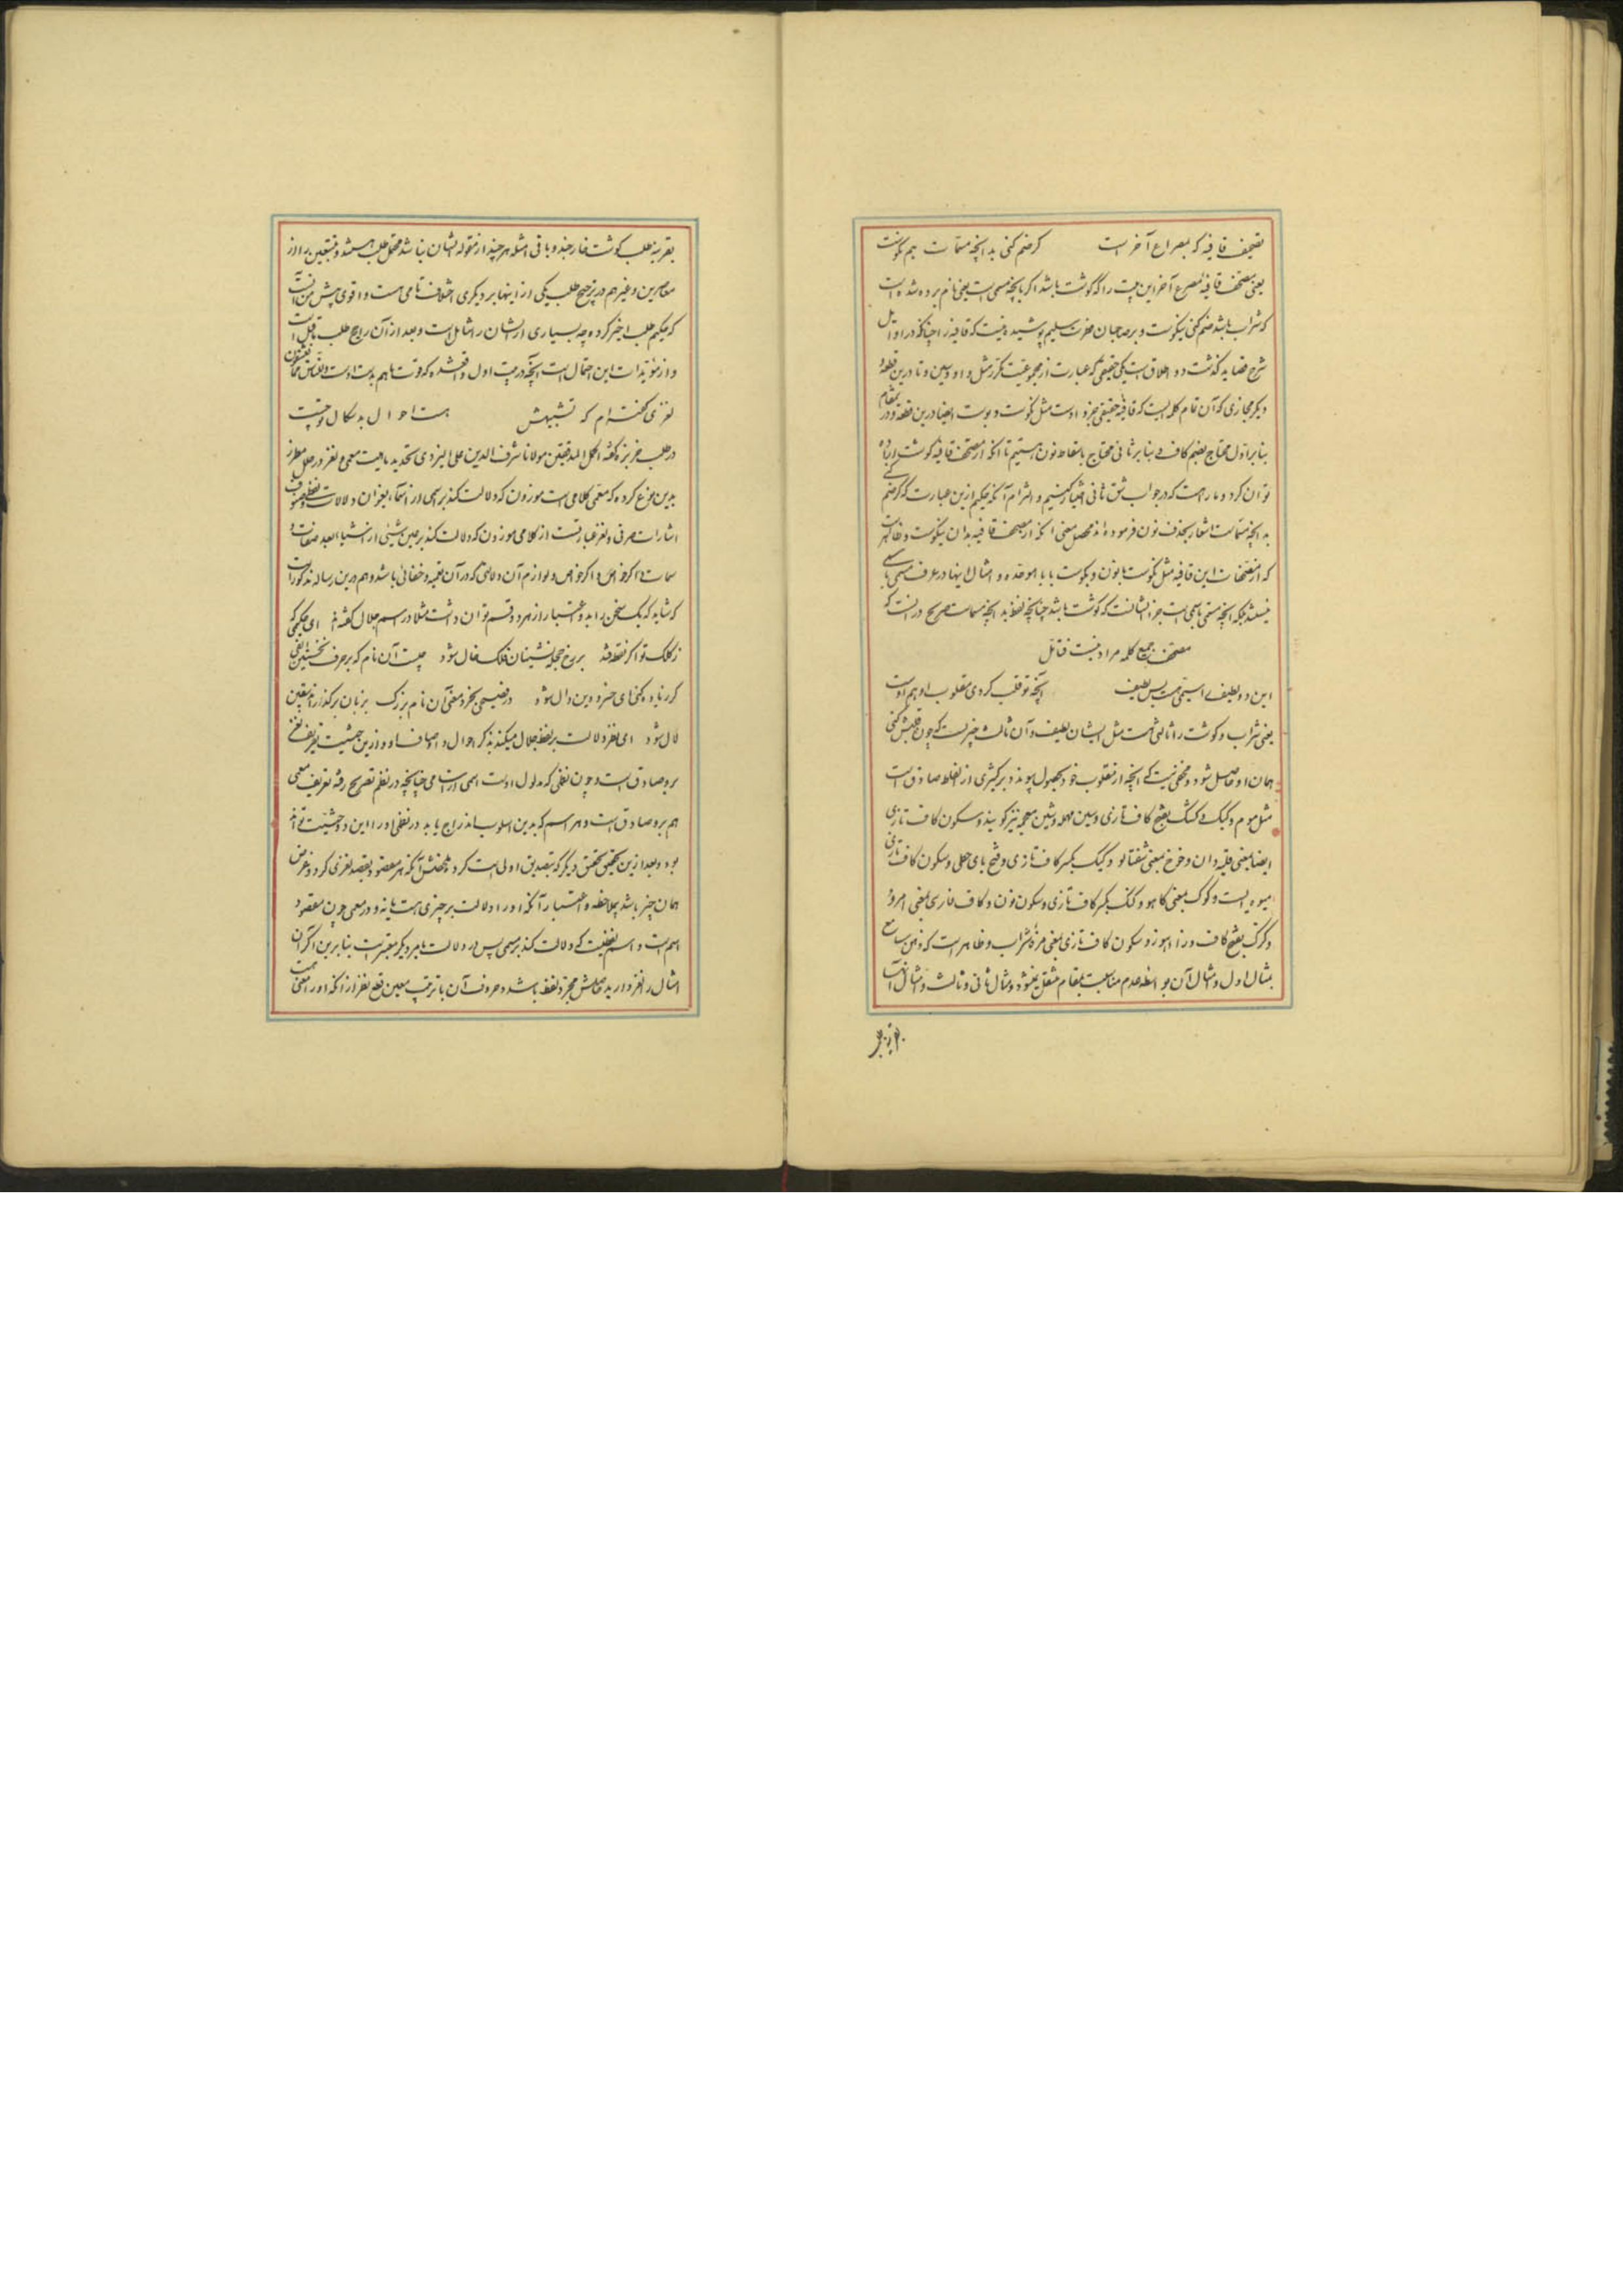 تصحیف قافیه که بمصراع آخر است کر ضم کنی بدانچه مسمّات هم نکوست
یعنی مصحّف قافیه مصرع آخر این بیت را که گوشت باشد اگر بانچه مسمی است یعنی نام برده شده است
که شراب باشد ضم کنی نیکوست و بر صاحبان فطرت سلیم پوشیده نیست که قافیه را چنانکه در اوایل
شرح قصاید گذشت دو اطلاق است یکی حقیقی که عبارت از مجموعیت مکرر مثل واو و سین و تا درین قطعه
دیگر مجازی که آن تمام کلمه ایست که قافیه حقیقی جزو اوست مثل نکوست و پوست ایضا درین قطعه و در مقام
بنا بر اول محتاج بضم کاف و بنا بر ثانی محتاج باسقاط نون هستیم تا آنکه از مصحّف قافیه گوشت اراده
توان کرد و ما را هست که در جواب شق ثانی اختیار کنیم و التزام آنکه حکیم ازین عبارت که کر ضم کنی
بدانچه مسمّات اشعار بحذف نون فرموده اند محصل معنی آنکه از مصحف قافیه بدان نیکوست و ظاهر است
که از مصحّفات این قافیه مثل نکوست با نون و بکوست با باء موحده و امثال اینها در عرف مسمی باسمی
نیستند بلکه آنچه مسمی باسمی است جز ایشانست که گوشت باشد چنانچه لفظ بدانچه مسمات صریح در آنست که
مصحّف جمیع کلمه مراد نیست فتامّل
این دو لطیف را سیّمی هست بس لطیف آنچه تو قلب کردی مقلوب او هم اوست
یعنی شراب و گوشت را ثالثی هست مثل ایشان لطیف و آن ثالث چیزیست که چون قلبش کنی
همان او حاصل شود و مخفی نیست که آنچه از مقلوب خود بحصول پیوندد بر کثیری از الفاظ صادق است
مثل موم و کبک و کشک بفتح کاف تازی و سین مهمله و شین معجمه نیز گویند و سکون کاف تازی
ایضا بمعنی قلیه و نان و خوخ بمعنی شفتالو و کیک بکسر کاف تازی و فتح یای حطی و سکون کاف تازی
میوه ایست و کوک بمعنی کاهو و کنک بکسر کاف تازی و سکون نون و کاف فارسی بمعنی امرود
و کرک بفتح کاف و را و سکون کاف تازی بمعنی مزه شراب و ظاهر است که ذهن سامع
بمثال اول و مثال آن بواسطه عدم مناسبت بمقام منتقل نمیشود و مثال ثانی و ثالث و امثال آنها
بقرینه طلب گوشت خارجند و باقی امثله هر چند از مقوله ایشان نباشد محتمل طلب هستند و متبعین را از
معاصرین و غیر هم در ترجیح طلب یکی از اینها بر دیگری اختلاف تامی هست و اقوی پیش من آنست
که حکیم طلب اخیر کرده چه بسیاری از ایشان را شامل است و بعد از آن راجح طلب
و از مؤیدات این احتمال است آنچه در بیت اول واقع شده که قوت ما هم بدست اوست
لغزی گفته‌ام که تشبیهش هست احوال بدسگال توچست
در طلب خربزه گفته اکمل المدققین مولانا شرف الدین علی الیزدی تحدید ماهیت معمی و لغز در حلل مطرز
بدین نوع کرده که معمّی کلامی است موزون که دلالت کند بر اسمی از اسماء بعنوان دلالات لفظ و حروف
اشارات حرفی و لغز عبارتست از کلامی موزون که دلالت کند بر عین شیئی از اشیا بعد صفات و
سمات و ذکر خواص و لوازم آن دلالتی که در آن تعمیه و خفائی باشد و هم درین رساله مذکور است
که شاید که یک سخن را بدو اعتبار از هر دو قسم توان داشت مثلا در اسم جلال گفته‌اند ای حکیمی که
ز کلک تو اگر نقطه فتد بر رخ حجله نشینان فلک خال شود چیست آن نام که بر حرف نخستین الفی
گر زیاده کنی ای خسرو دین دال شود ور فصیحی بخرد معنی آن نام بزرگ بر زبان برگذراند بیقین
لال شود این لغز دلالت بر لفظ جلال میکند بذکر احوال و اوصاف او و ازین حیثیت تعریف لغز
برو صادق است و چون لفظی که مدلول اوست اسمی از اسامی چنانچه در نظم تصریح رفته تعریف معمی
هم برو صادق است و هر اسم که بدین اسلوب اندراج یابد در نظمی او را این دو حیثیت تواند
بود و بعد ازین تحقیق تحقیق دیگر که بتصدیق اولی است کرده ملخصش آنکه هر معقود بقصد لغزی کرد و غرض
همان چیز باشد بملاحظه و اعتبار آنکه او را دلالت بر چیزی هست یا نه و در معمی چون مقصود
اسم است و اسم لفظیست که دلالت کند بر مسمی پس در دلالت نام بر دیگر معتبر است بنا برین اگر آن
امثال را لغز دارید حاصلش مجرد لفظ باشد و حروف آن با ترتیب معین قطع نظر از آنکه او را معنی هست